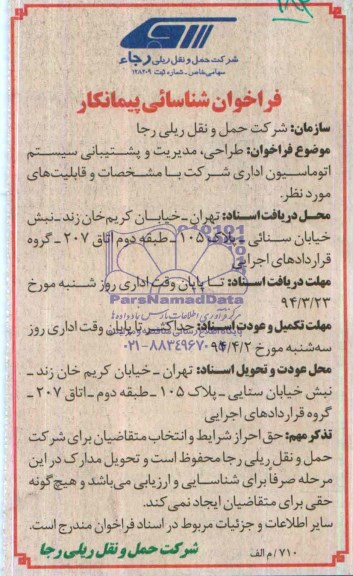 ۱۸۴
شرکت حمل و نقل ریلی رجاء
سهامی خاص - شماره ثبت ۱۲۸۲۰۹
فراخوان شناسائی پیمانکار
سازمان: شرکت حمل و نقل ریلی رجا
موضوع فراخوان: طراحی، مدیریت و پشتیبانی سیستم
اتوماسیون اداری شرکت با مشخصات و قابلیت‌های
مورد نظر.
محل دریافت اسناد: تهران - خیابان کریم‌خان زند - نبش
خیابان سنائی - پلاک ۱۰۵ - طبقه دوم اتاق ۲۰۷ - گروه
قراردادهای اجرایی
ParsNamadData
مهلت دریافت اسناد: تا پایان وقت اداری روز شنبه مورخ
۹۴/۳/۲۳
مهلت تکمیل و عودت اسناد: حداکثر تا پایان وقت اداری روز
سه‌شنبه مورخ ۹۴/۴/۲
۰۲۱-۸۸۳۴۹۶۷۰
محل عودت و تحویل اسناد: تهران - خیابان کریم خان زند -
نبش خیابان سنایی - پلاک ۱۰۵ - طبقه دوم - اتاق ۲۰۷ -
گروه قراردادهای اجرایی
تذکر مهم: حق احراز شرایط و انتخاب متقاضیان برای شرکت
حمل و نقل ریلی رجا محفوظ است و تحویل مدارک در این
مرحله صرفا برای شناسایی و ارزیابی می‌باشد و هیچ‌گونه
حقی برای متقاضیان ایجاد نمی کند.
سایر اطلاعات و جزئیات مربوط در اسناد فراخوان مندرج است.
۷۱۰ / م الف
شرکت حمل و نقل ریلی رجا